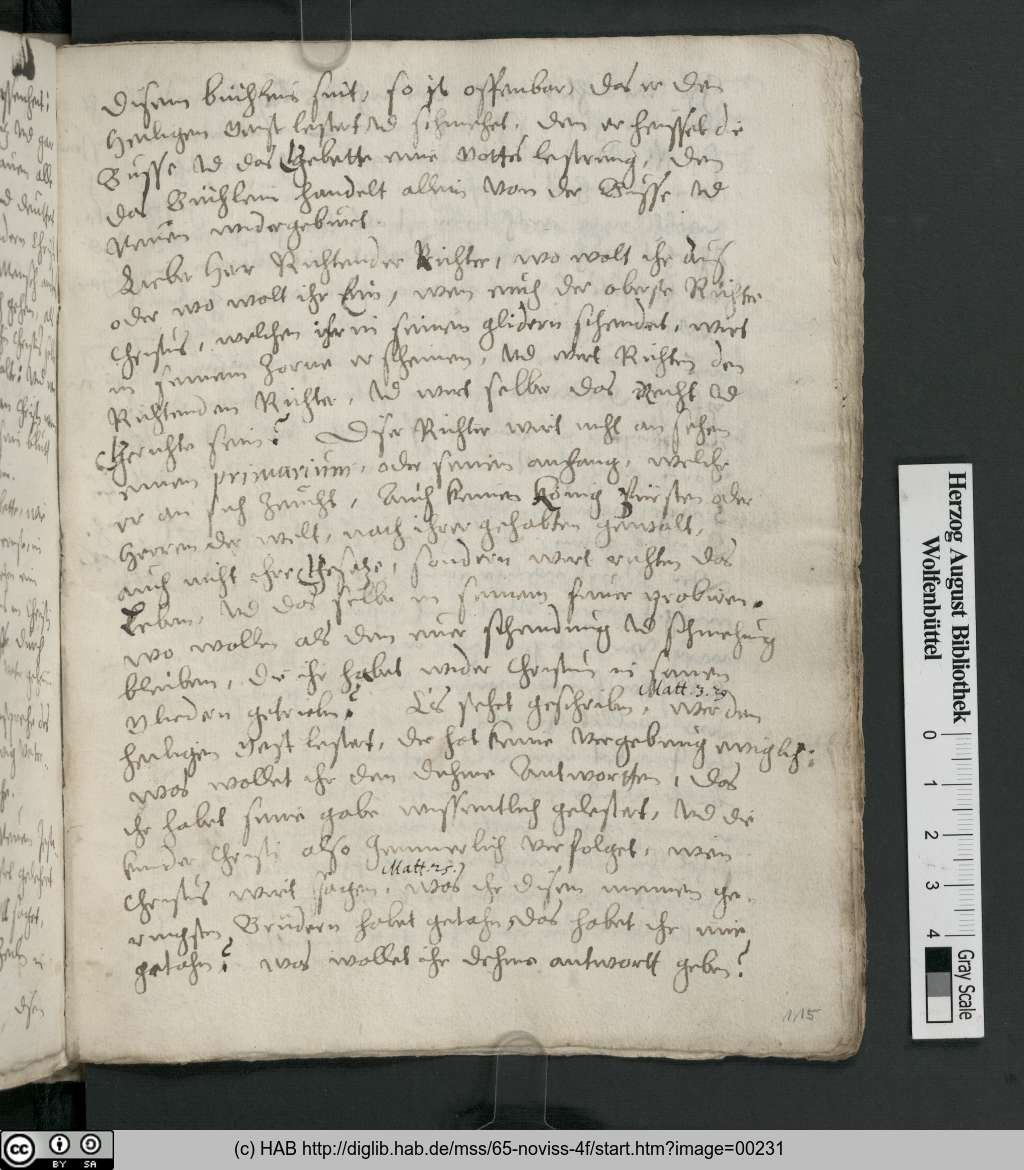 disem büchlein seit, so ist offenbar, das er den
Heiligen Geist lestert vnd schmehet, den er heisset die
Busse vnd das Gebette eine Gottes lesterung, den
das Büchlein handelt allein von der Busse vnd
Neuen widergebuert.
Lieber Herr Richtender Richter, wo wolt ihr auß
oder wo wolt ihr Ein, wen euch der oberste Richter
Christus, welchen ihr in seinen glidern schendet, wirt
in seinem Zorne erscheinen, vnd wirt Richten den
Richtenden Richter, vnd wirt selber das Recht vnd
Gerichte sein? Diser Richter wirt nicht an sehen
einen primarium, oder seinen anhang, welche
er an sich zeucht, Auch keinen König Fürsten oder
Herren der welt, nach ihrer gehabten gewalt,
auch nicht ihre Gesetze, sondern wirt richten das
Leben, vnd das selbe in seinem feuer probiren.
wo wollen als den eure schendung vnd schmehung
bleiben, die ihr habet wider Christum in seinen
Gliedern getrieben? Es stehet geschrieben, wer den
Matt. 3. 29
heiligen Geist lestert, der hat keine vergebung ewiglich:
was wollet ihr den dahine Antwortten, das
ihr habet seine gabe wissentlich gelestert, vnd die
kinder Christi also Jemmerlich verfolget, wen
Christus wirt sagen, was ihr disen meinen ge-
Matt. 25.
ringsten Brüdern habet getahn, das habet ihr mir
getahn? was wollet ihr dahine antwortt geben?
115
disen
Herzog August Bibliothek
Wolfenbüttel
0 1 2 3 4
Gray Scale
cc BY SA
(c) HAB http://diglib.hab.de/mss/65-noviss-4f/start.htm?image=00231